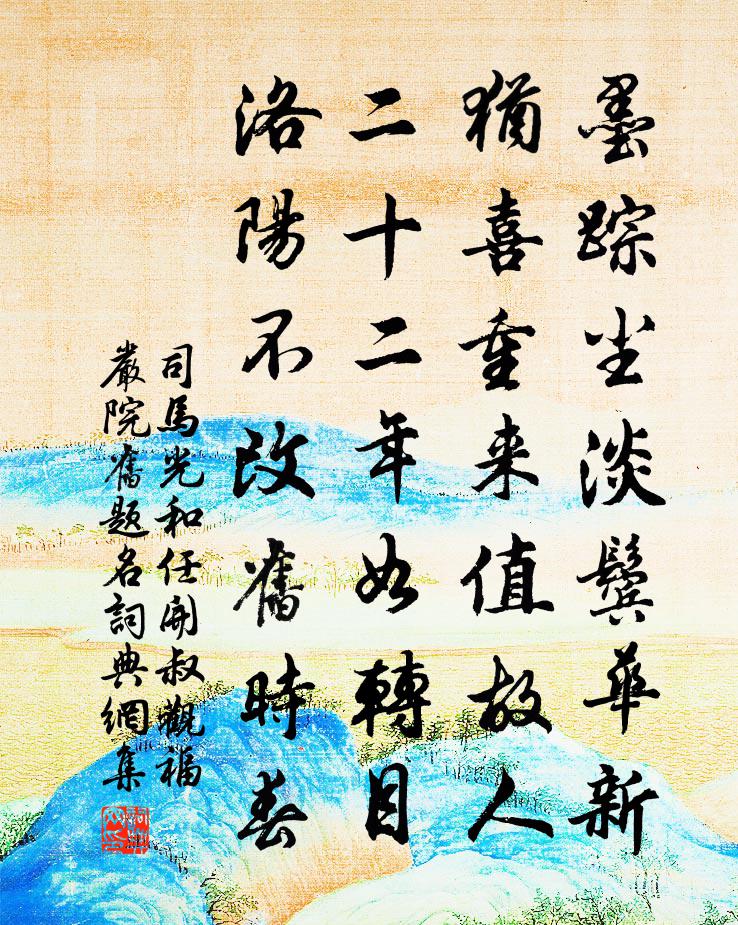 墨踪尘淡鬓华新
猶喜重来值故人
二十二年如轉目
洛陽不改舊時春
司馬光和任開叔觀福
嚴院舊題名詞典網集